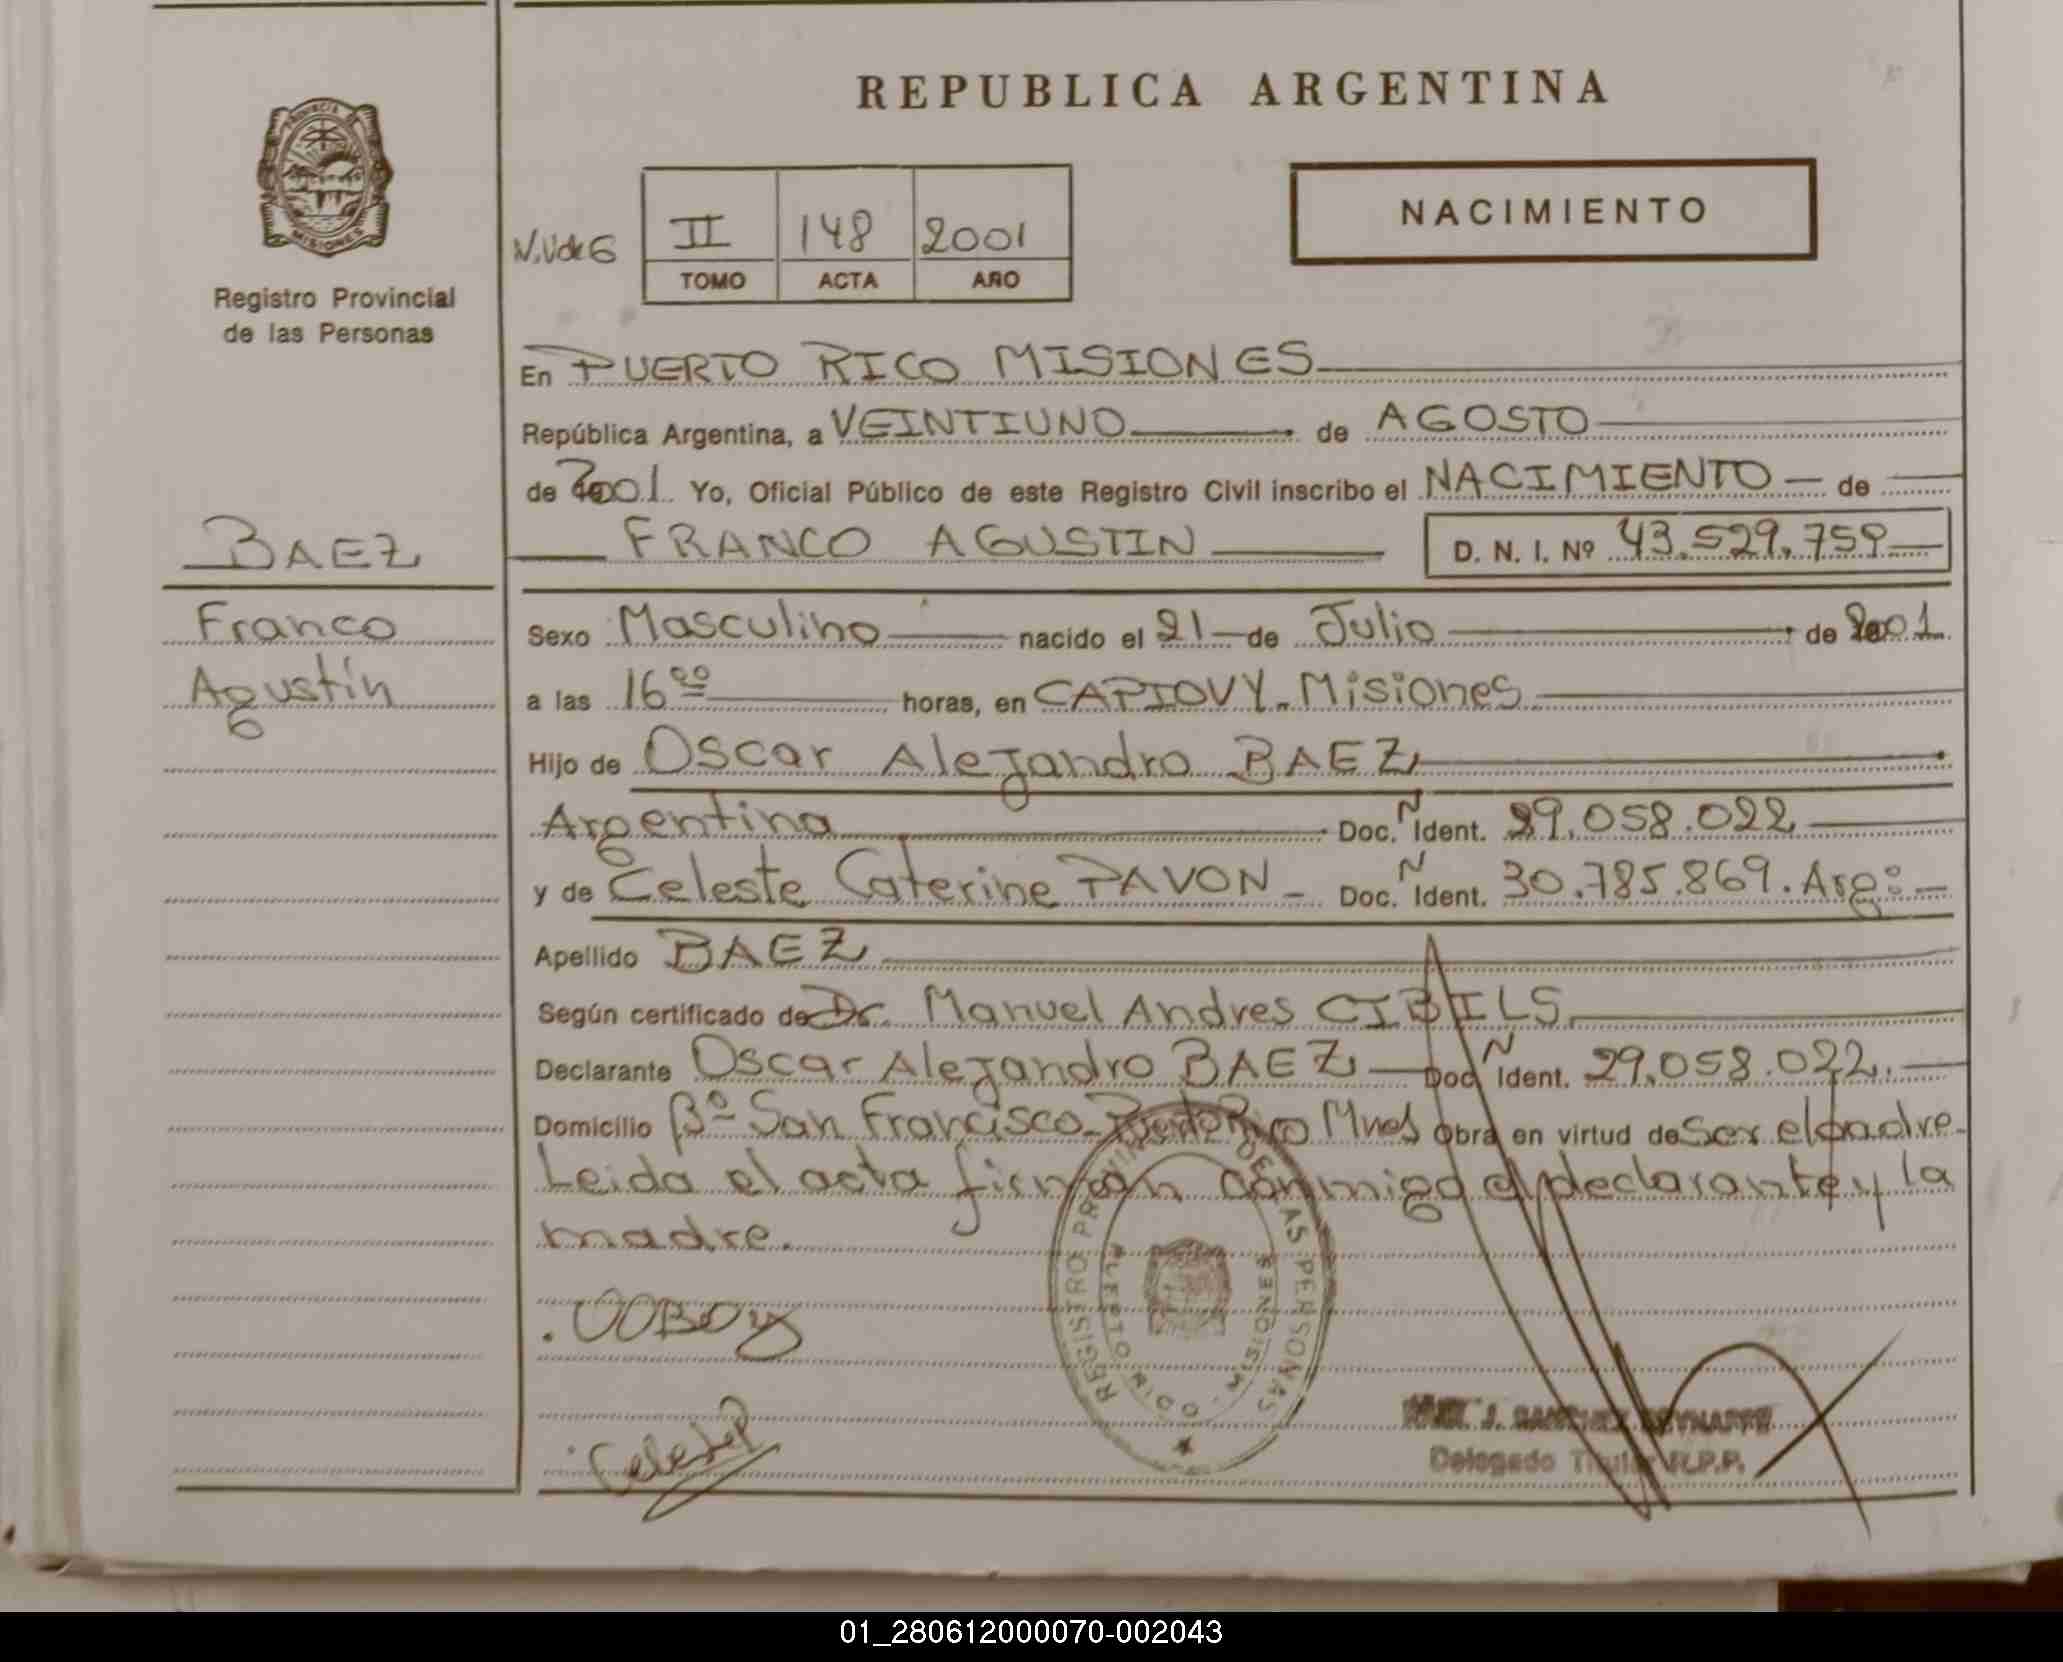 REPUBLICA ARGENTINA
PROVINCIA DE
MISIONES
Registro Provincial
de las Personas
II 148 2001
TOMO ACTA AÑO
NACIMIENTO
En PUERTO RICO MISIONES
República Argentina, a VEINTIUNO de AGOSTO
de 2001 Yo, Oficial Público de este Registro Civil inscribo el NACIMIENTO de
BAEZ
FRANCO AGUSTIN D. N. I. Nº 43.529.759
Franco
Sexo Masculino nacido el 21 de Julio de 2001
Agustín
a las 16⁰⁰ horas, en CAPIOVY - Misiones
Hijo de Oscar Alejandro BAEZ
Argentina Doc. N Ident. 29.058.022
y de Celeste Caterine PAVON - Doc. N Ident. 30.785.869. Arg:
Apellido BAEZ
Según certificado de Dr. Manuel Andres CIBILS
Declarante Oscar Alejandro BAEZ Doc. N Ident. 29.058.022.
Domicilio Bº San Francisco - Puerto Rico Mnes Obra en virtud de ser el padre.
Leida el acta firman conmigo el declarante y la
madre.
REGISTRO PROVINCIAL DE LAS PERSONAS
MISIONES
Celeste P
J. SANCHEZ
Delegado Titular R.P.P.
01_280612000070-002043